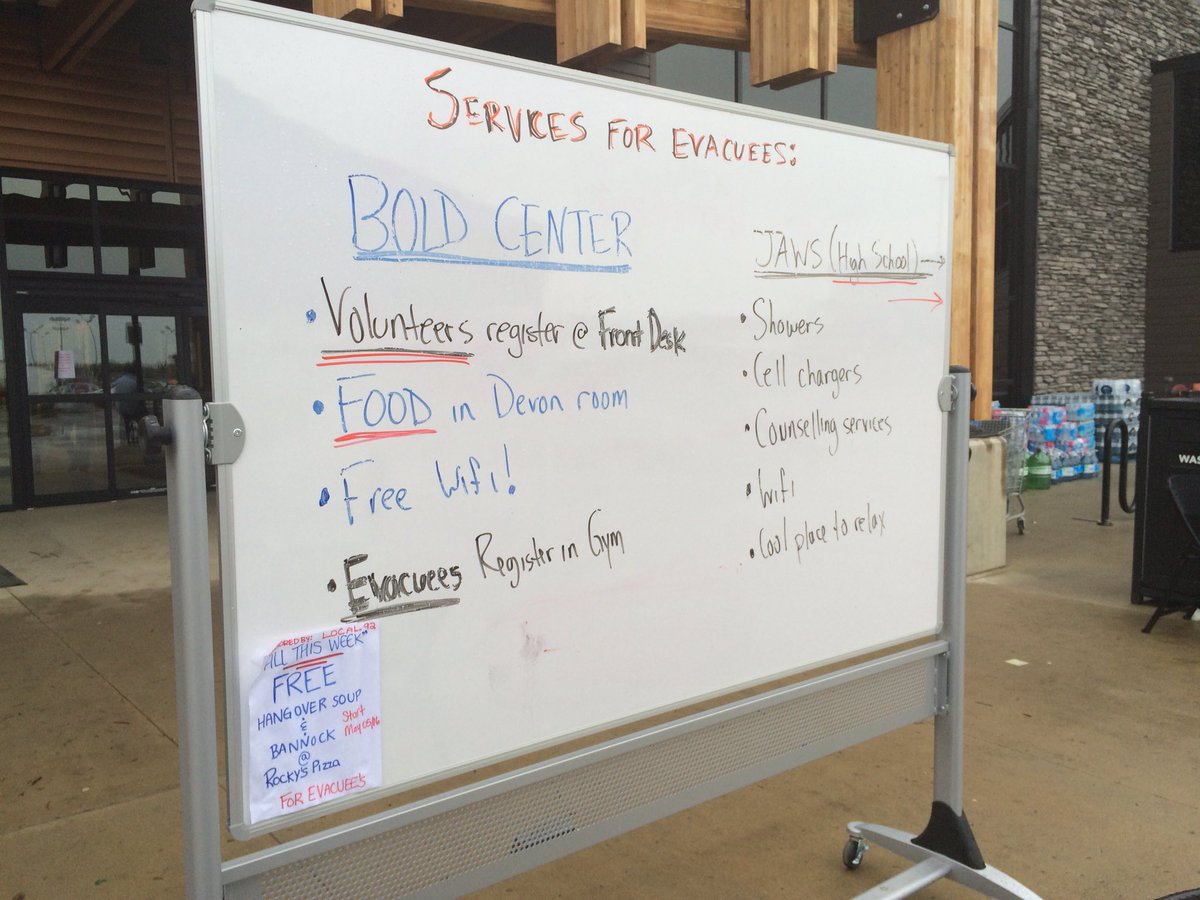 SERVICES FOR EVACUEES:
BOLD CENTER
• Volunteers register @ Front Desk
• FOOD in Devon room
• Free Wifi!
• Evacuees Register in Gym
JAWS (High School) →
→
• Showers
• Cell chargers
• Counselling services
• Wifi
• Cool place to relax
BY: LOCAL 92
ALL THIS WEEK"
FREE
HANGOVER SOUP
&
BANNOCK
@
ROCKY'S PIZZA
Start
May 05/16
FOR EVACUEE'S
WAS